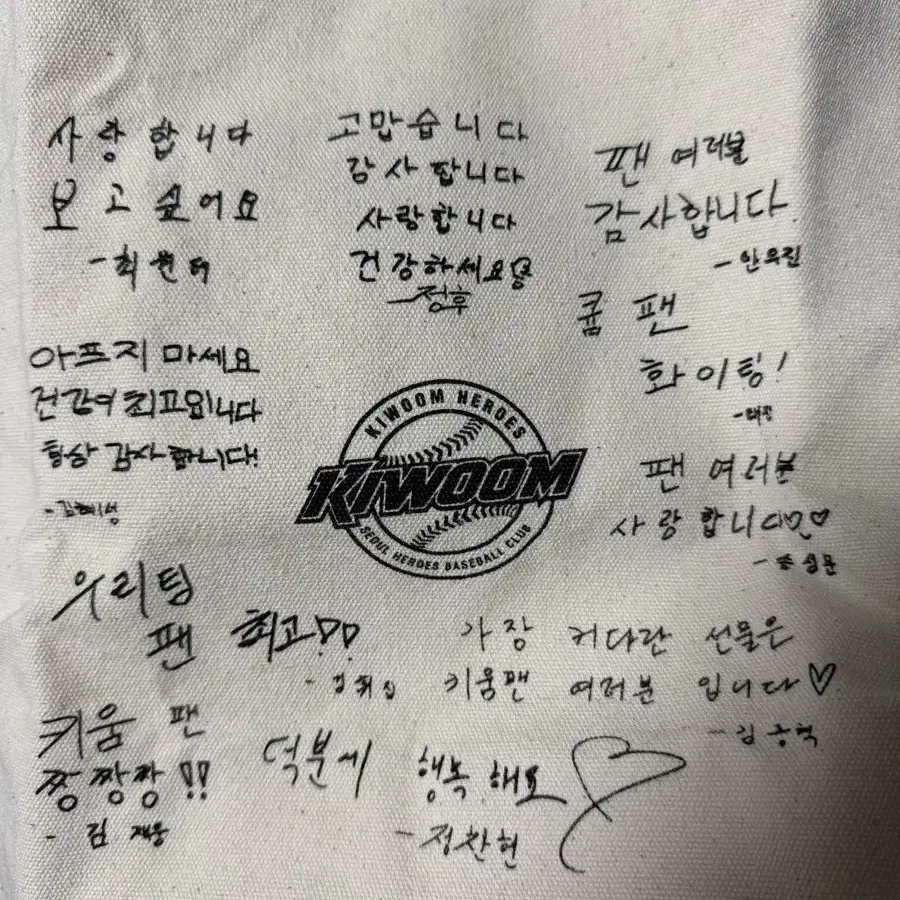 사랑합니다
보고싶어요
고맙습니다
감사합니다
사랑합니다
건강하세요
-정후
팬 여러분
감사합니다
-안우진
쿰 팬
화이팅!
팬 여러분
사랑합니다♡
아프지 마세요
건강이 최고입니다
항상 감사합니다!
-김혜성
KIWOOM HEROES
KIWOOM
SEOUL HEROES BASEBALL CLUB
우리팀
팬 최고!!
가장 커다란 선물은
키움팬 여러분 입니다♡
키움 팬
짱짱짱!!
- 김재웅
덕분에 행복해요♡
-정찬헌